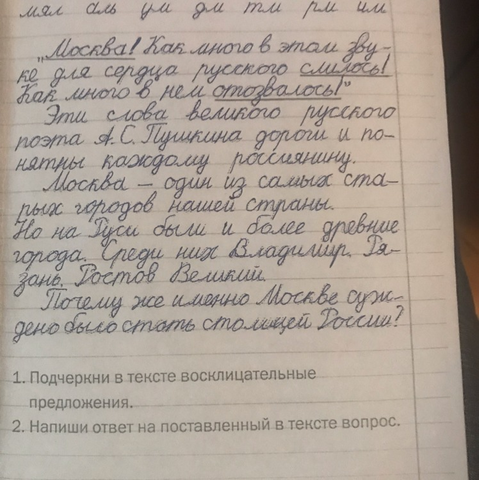 мял аль ум дм тм рм им
„Москва! Как много в этом зву-
ке для сердца русского слилось!
Как много в нем отозвалось!"
Эти слова великого русского
поэта А.С. Пушкина дороги и по-
нятны каждому россиянину.
Москва – один из самых ста-
рых городов нашей страны.
Но на Руси были и более древние
города. Среди них Владимир. Ря-
зань. Ростов Великий.
Почему же именно Москве суж-
дено было стать столицей России?
1. Подчеркни в тексте восклицательные
предложения.
2. Напиши ответ на поставленный в тексте вопрос.